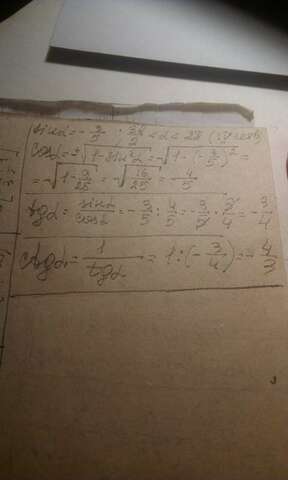 sinα = - 3/5 ; 3π/2 < α < 2π (IV четв)
cosα = ± √(1 - sin²α) = -√(1 - (-3/5)²) =
= -√(1 - 9/25) = -√(16/25) = - 4/5
tgα = sinα/cosα = - 3/5 : 4/5 = - 3/5 · 5/4 = - 3/4
ctgα = 1/tgα = 1 : (- 3/4) = - 4/3